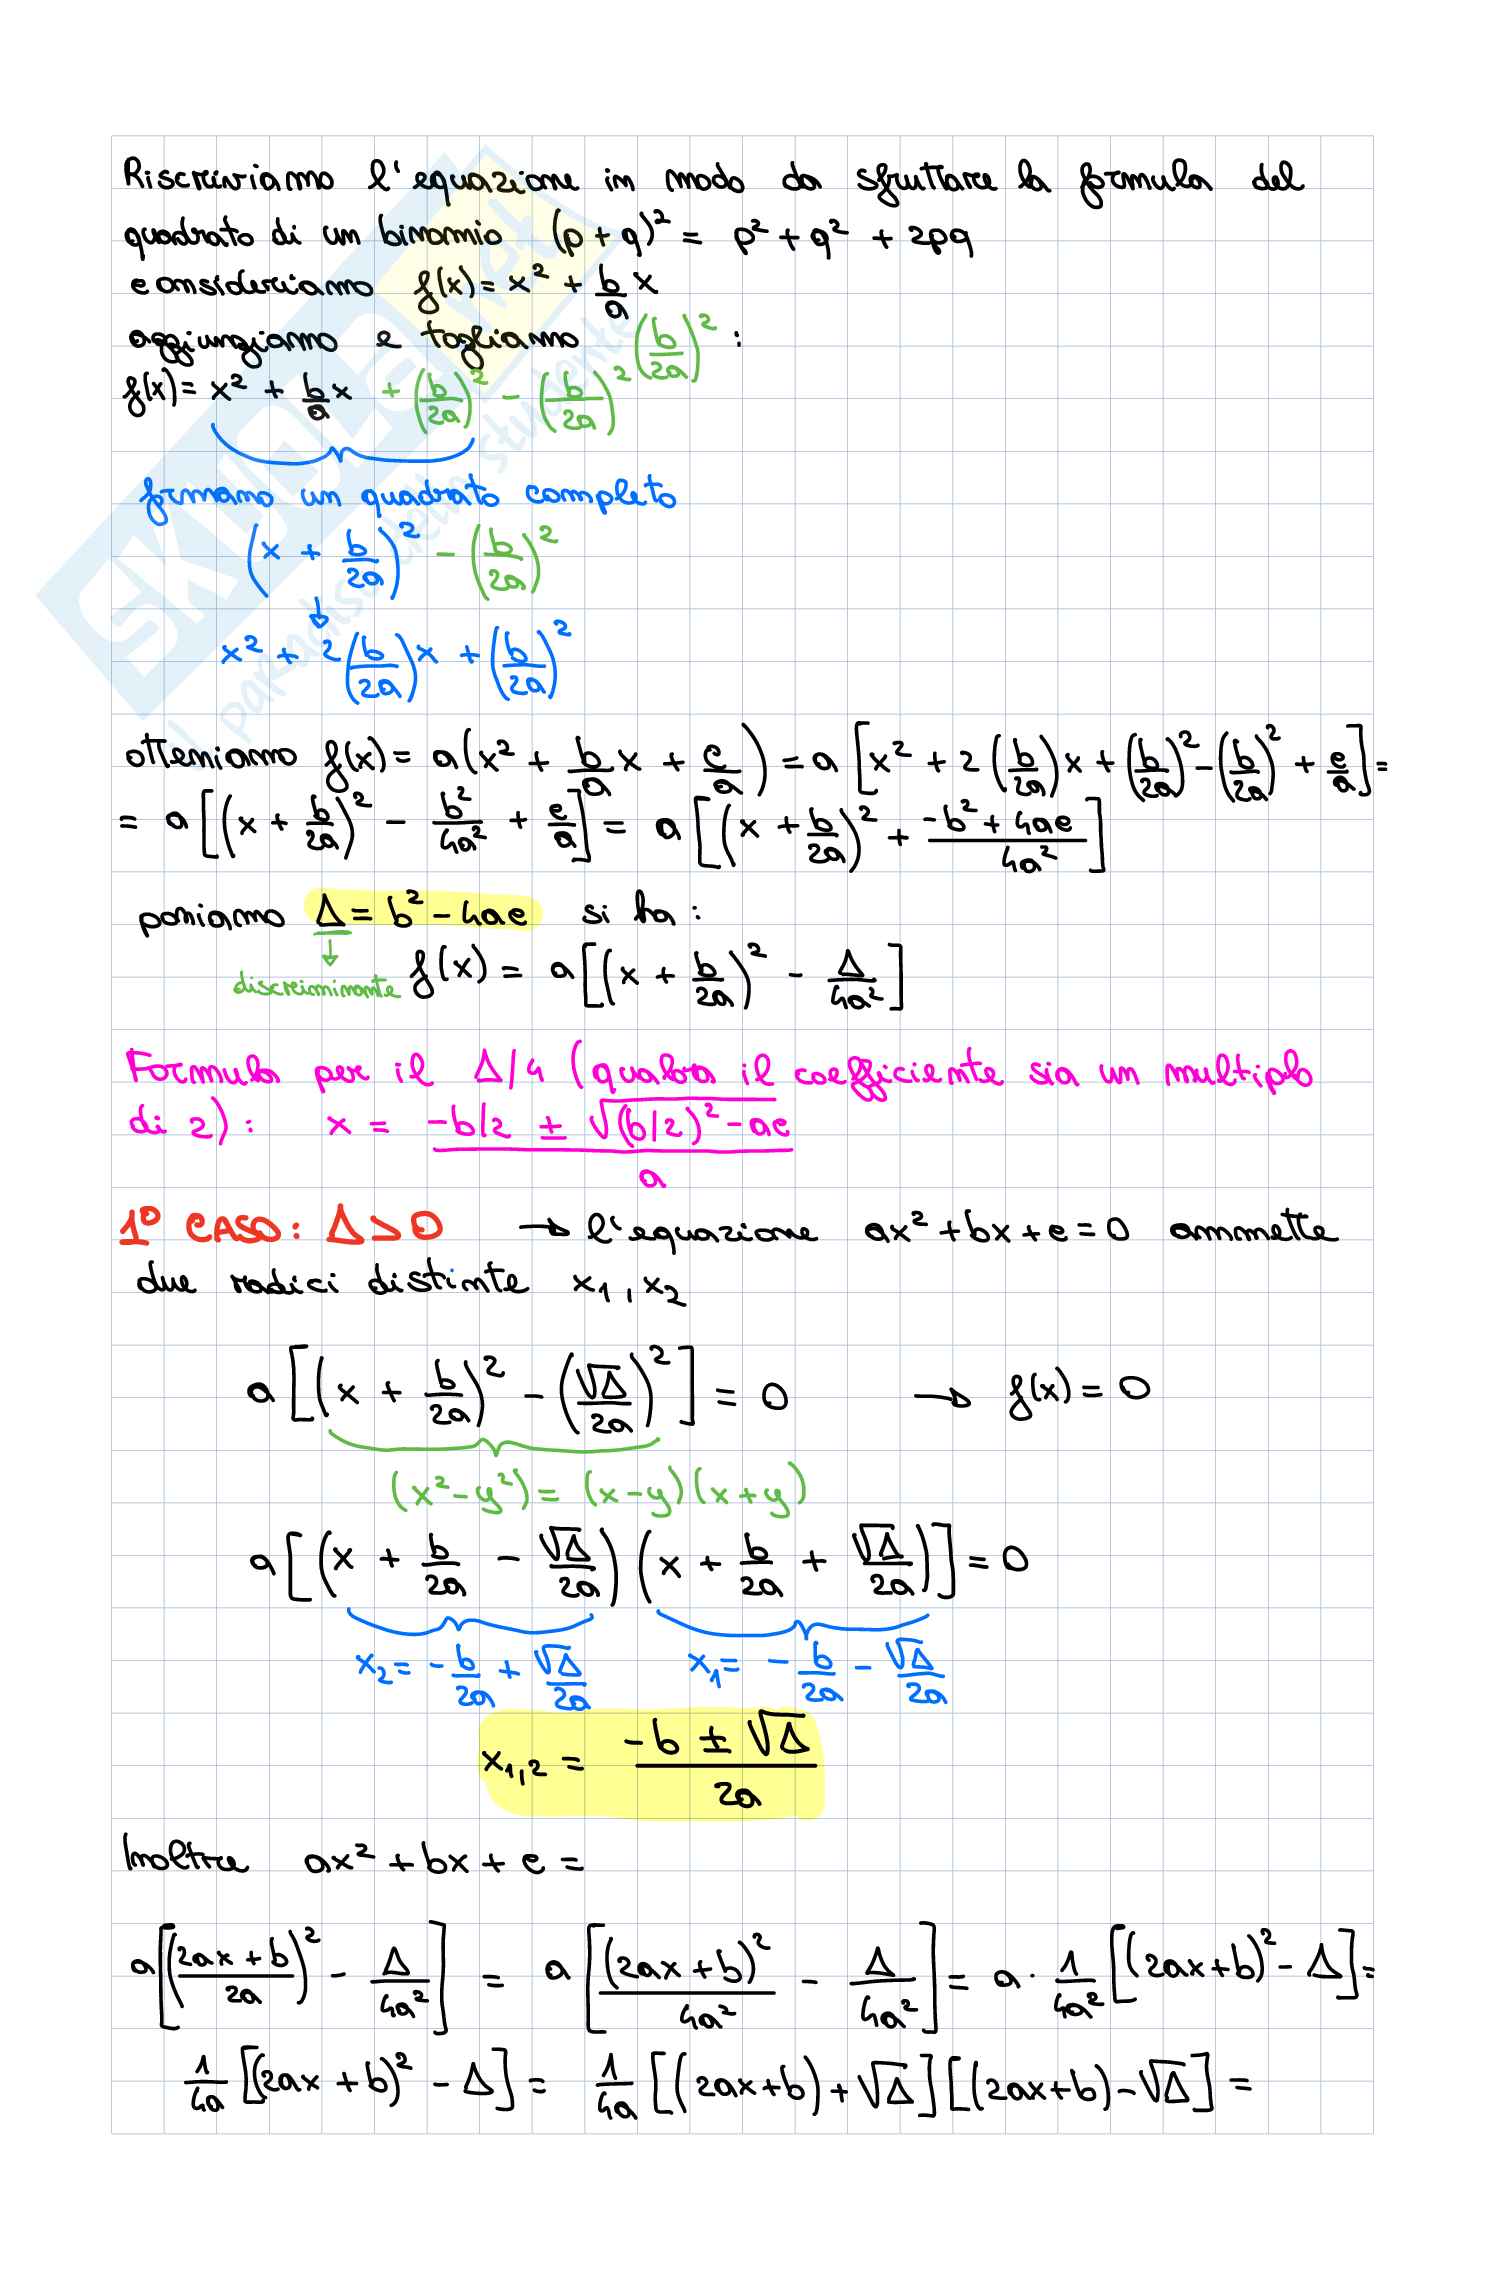 Riscriviamo l'equazione in modo da sfruttare la formula del
quadrato di un binomio (p + q)² = p² + q² + 2pq
consideriamo f(x) = x² + b/a x
aggiungiamo e togliamo (b/2a)² :
f(x) = x² + b/a x + (b/2a)² - (b/2a)²
formano un quadrato completo
(x + b/2a)² - (b/2a)²
↓
x² + 2(b/2a)x + (b/2a)²
otteniamo f(x) = a(x² + b/a x + c/a) = a[x² + 2(b/2a)x + (b/2a)² - (b/2a)² + c/a] =
= a[(x + b/2a)² - b²/4a² + c/a] = a[(x + b/2a)² + (-b² + 4ac)/4a²]
poniamo Δ = b² - 4ac si ha :
↓
discriminante f(x) = a[(x + b/2a)² - Δ/4a²]
Formula per il Δ/4 (qualora il coefficiente sia un multiplo
di 2) : x = (-b/2 ± √((b/2)² - ac))/a
1° CASO: Δ > 0 → l'equazione ax² + bx + c = 0 ammette
due radici distinte x₁, x₂
a[(x + b/2a)² - (√Δ/2a)²] = 0 → f(x) = 0
(x² - y²) = (x - y)(x + y)
a[(x + b/2a - √Δ/2a)(x + b/2a + √Δ/2a)] = 0
x₂ = -b/2a + √Δ/2a x₁ = -b/2a - √Δ/2a
x₁,₂ = (-b ± √Δ)/2a
Inoltre ax² + bx + c =
a[((2ax + b)/2a)² - Δ/4a²] = a[(2ax + b)²/4a² - Δ/4a²] = a · 1/4a² [(2ax + b)² - Δ] =
1/4a [(2ax + b)² - Δ] = 1/4a [(2ax + b) + √Δ][(2ax + b) - √Δ] =
SKUOLA.net
il paradiso dello studente